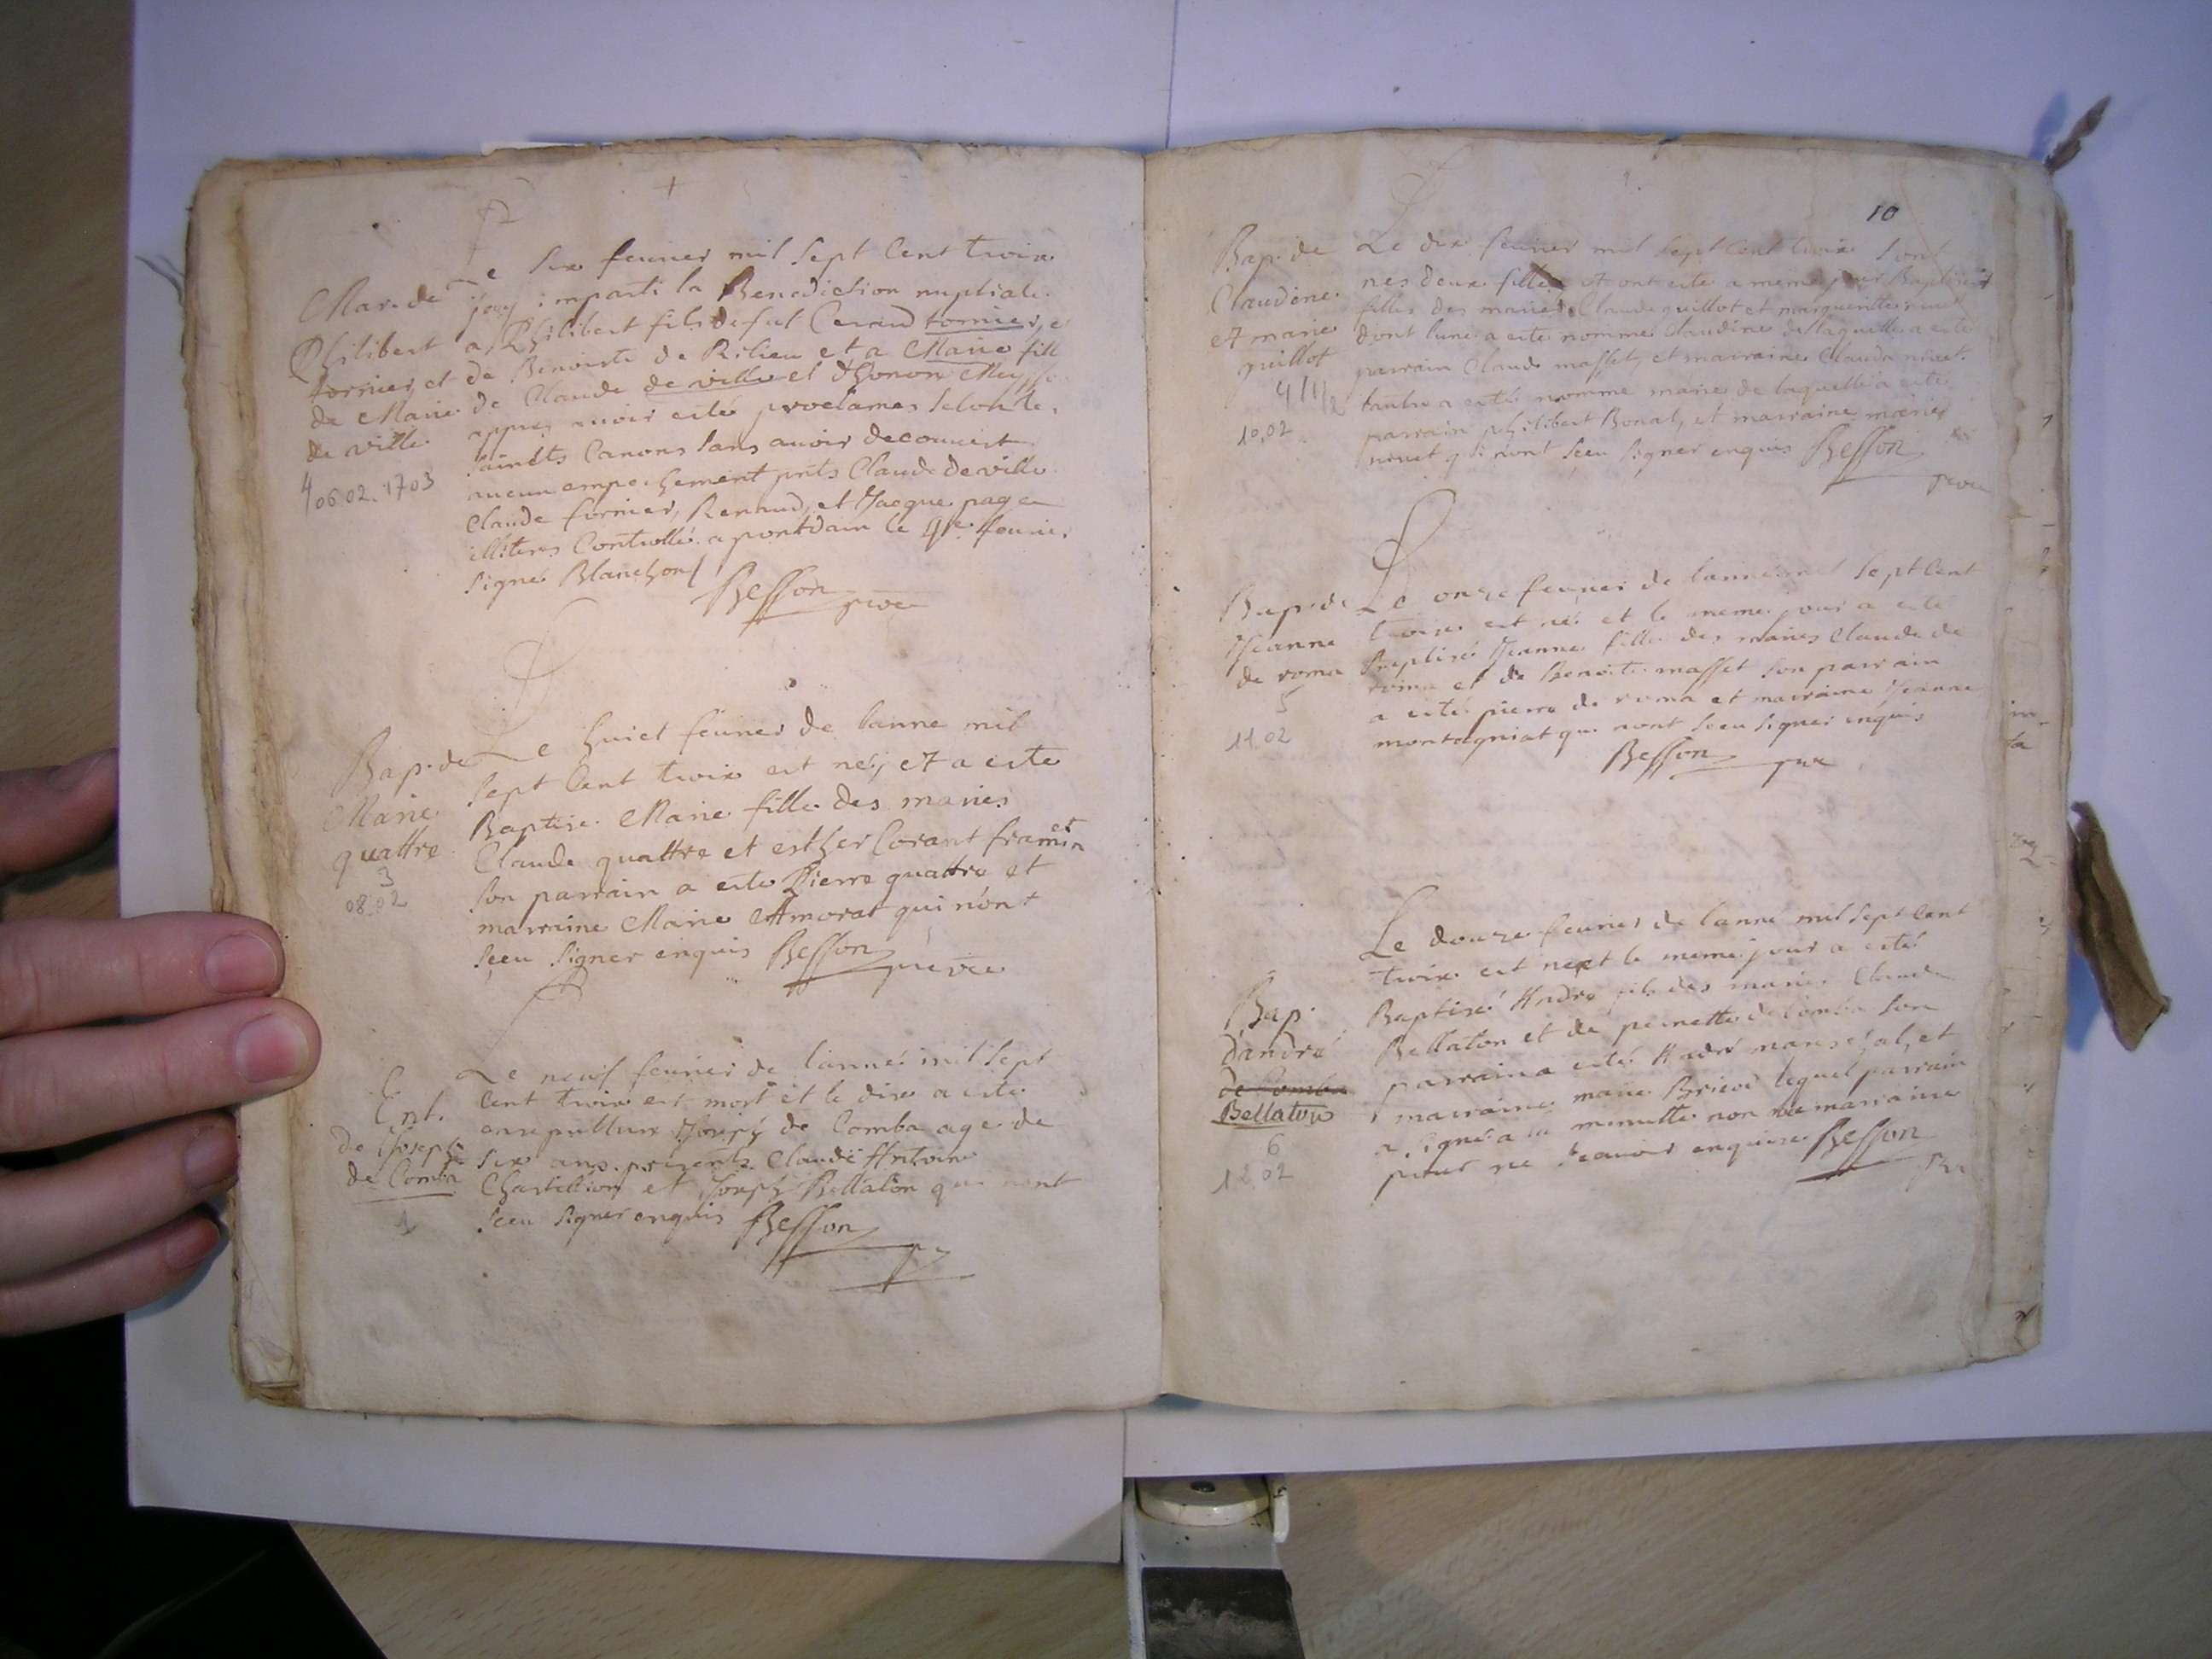 Mar. de
Philibert
fornier et
de Marie
de ville
4
06.02.1703
Le six feurier mil sept Cent troix
j'ay imparti la Benediction nuptiale
a Philibert fils de fut fornier, e
de Benoiste de Rilieu et a Marie fill
de Claude de ville et Honor
appres auoir estés proclames selon les
saincts Canons sans auoir decouuert
aucun empechement pnts Claude De ville
Claude fornier, Renaud, et Jacque page
illiteres Controllé a pontdain le feurie.
signé Blanchon
Besson
Bap. de
Marie
quattre
3
08.02
Le huict feurier de lanne mil
sept Cent troix est néé et a este
Baptise Marie fille des maries
Claude quattre et esther Corant
son parrain a este Pierre quattre et
marraine Marie Amorat qui n'ont
sceu signer enquis Besson
Ent.
de Joseph
de Comba
1
Le neuf feurier de lanné mil sept
Cent troix est mort et le dix a este
ensepultur Joseph de Comba age de
six ans presents Claude Antoine
Chastillion et Joseph Bellaton qui nont
sceu signer enquis Besson
10
Bap. de
Claudine
et marie
guillot
4
10.02
Le dix feurier mil sept Cent troix sont
nes deux filles et ont este a meme jour Baptisees
filles des maries Claude guillot et margueritte
dont lune a este nomme Claudine de laquelle a este
parrain Claude masset, et marraine Clauda niuet
lautre a esté nomme marie de laquelle a este
parrain philibert Bonat, et marraine marie
niuet qui nont sceu signer enquis Besson
Bap. de
Jeanne
de roma
5
11.02
Le onze feurier de lannee mil sept Cent
troix est né et le meme jour a esté
Baptisé Jeanne fille des maries Claude de
roma et de Benoite masset son parrain
a esté pierre de roma et marraine Jeanne
montagniat qui nont sceu signer enquis
Besson
Bap.
dandré
de Comba
Bellaton
6
12.02
Le douze feurier de lanné mil sept Cent
troix est né et le meme jour a esté
Baptisé Andre fils des maries Claude
Bellaton et de pernette de Comba son
parrain a esté André mareschal, et
marraine marie lequel parrain
a signé a la minutte non la marraine
pour ne scauoir enquise Besson